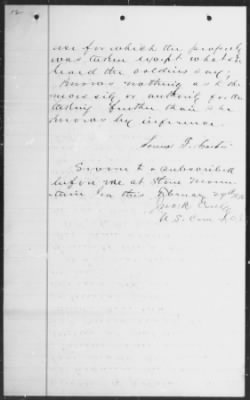 use for which the property
was taken except what he
heard the soldiers say,
Knows nothing as to the
necessity or authority for the
taking further than is he
knows by inference.
James F.
Sworn to & subscribed
before me at Stone Moun-
tain Ga this February 29th
U.S. Com